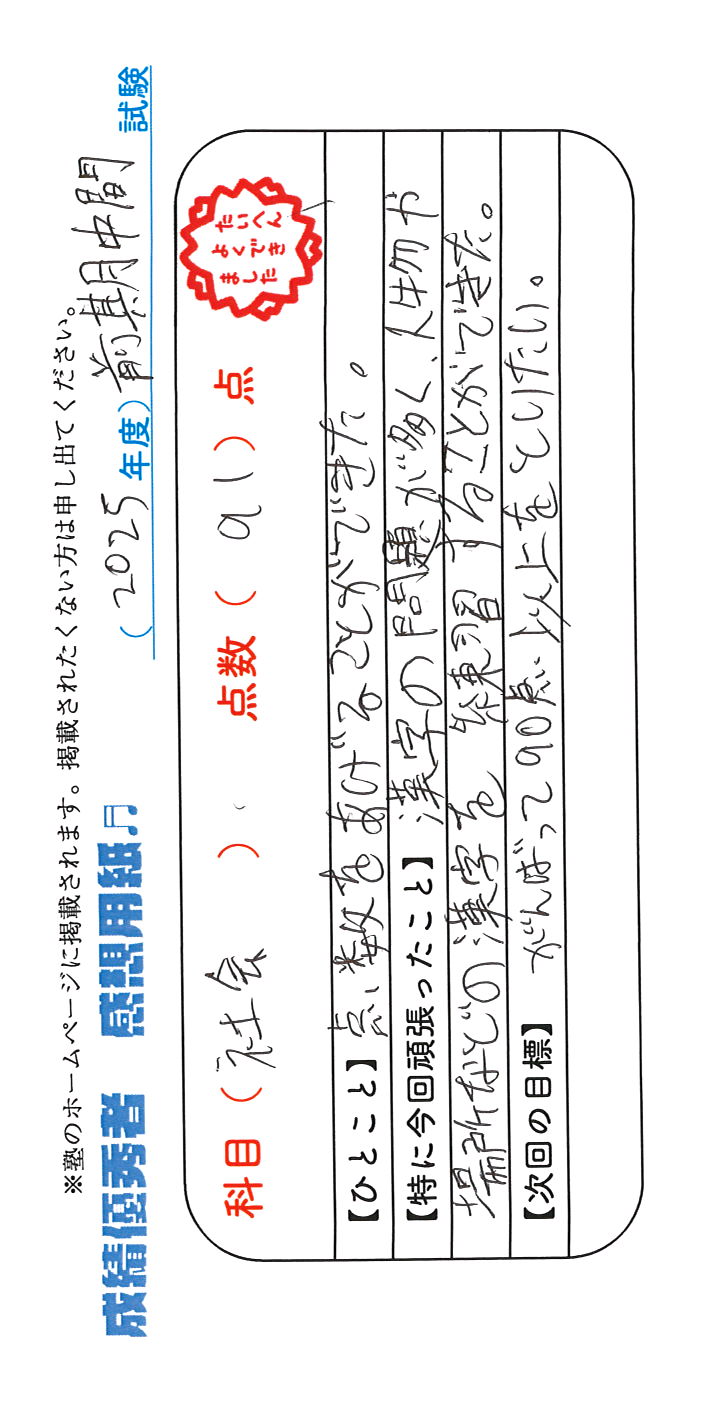 ※塾のホームページに掲載されます。掲載されたくない方は申し出てください。
成績優秀者 感想用紙♫ （2025年度）前期中間 試験
科目（社会） 点数（91）点
たいへん
よくでき
ました
【ひとこと】点数をあげることができた。
【特に今回頑張ったこと】漢字の問題が多く、人物や
場所などの漢字を練習することができた。
【次回の目標】がんばって90点以上をとりたい。